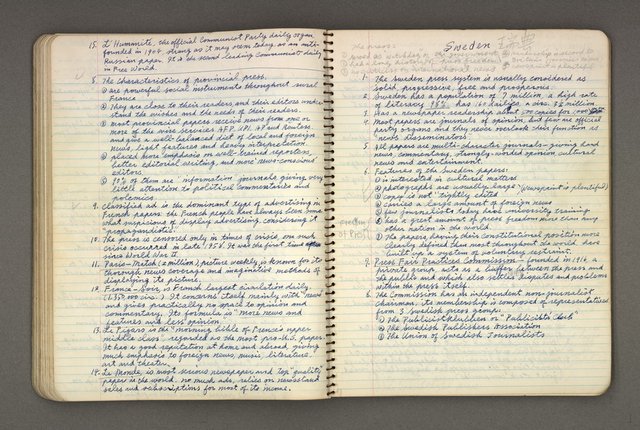 15. L'Humanite, the official Communist Party daily organ
founded in 1904, strong as it may seem today, as an anti-
Russian paper. It is the second leading Communist daily
in Free World.
8. The characteristics of provincial press.
① are powerful social instruments throughout rural
France
② They are close to their readers, and their editors under-
stand the wishes and the needs of their readers.
③ most provincial papers receive news from one or
more of the wire services AFP, UPI, AP and Reuters,
and give a well-balanced diet of local and foreign
news, light features and heavy interpretation.
④ placed more emphasis on well-trained reporters,
better editorial writing, and more news-conscious
editors.
⑤ 99% of them are "information" journals giving very
little attention to political commentaries and
polemics.
9. Classified ad is the dominant type of advertising in
French papers. The French people have always been some-
what suspicious of display advertising, considering it
"propagandistic".
10. The press is censored only in times of crisis, one such
crisis occurred in late 1958. It was the first time
since World War II.
11. Paris-Match (2 million) picture weekly is known for its
thorough news coverage and imaginative methods of
displaying its pictures.
12. France-Soir, is French largest circulation daily
(1,350,000 circ.). It concerns itself mainly with "news"
and gives practically no space to opinion and
commentary. Its formula is "more news and
features and less opinion."
13. Le Figaro is the "morning bible of France's upper
middle class", regarded as the most pro-U.S. paper.
It has a good reputation at home and abroad, giving
much emphasis to foreign news, music, literature,
art and theater.
14. Le Monde, is most serious newspaper and top "quality"
paper in the world. no much ads, relies on newsstand
sales and subscriptions for most of its income.
Sweden 瑞典
1. The Sweden press system is usually considered as
solid, progressive, free and prosperous.
2. Sweden has a population of 7 million, a high rate
of literacy, 98%. has 160 dailies, a circ. 3.8 million
3. Has a newspaper readership about
4. Most papers are journals of opinion, but few are official
party organs and they never overlook their function as
news disseminators.
5. All papers are multi-character journals - giving hard
news, commentary, strongly-worded opinion, cultural
news and entertainment.
6. Features of the Sweden papers:
① is interested in cultural matters
② photographs are usually large (Newsprint is plentiful)
③ copy is not "tightly edited"
④ carried a large amount of foreign news
⑤ few journalists today have university training
⑥ has a great amount of press freedom more than any
other nation in the world.
⑦ The papers having their constitutional position more
clearly defined than most throughout the world, have
built up a system of voluntary restraint.
7. Press Fair Practices Commission - founded in 1916, a
private group, acts as a buffer between the press and
the public and which also settles disputes and problems
within the press itself.
8. The Commission has an independent non-journalist
chairman; its membership is composed of representatives
from 3 Swedish press groups.
① The Publicistklubben or "Publicists Club"
② The Swedish Publishers Association
③ The Union of Swedish Journalists